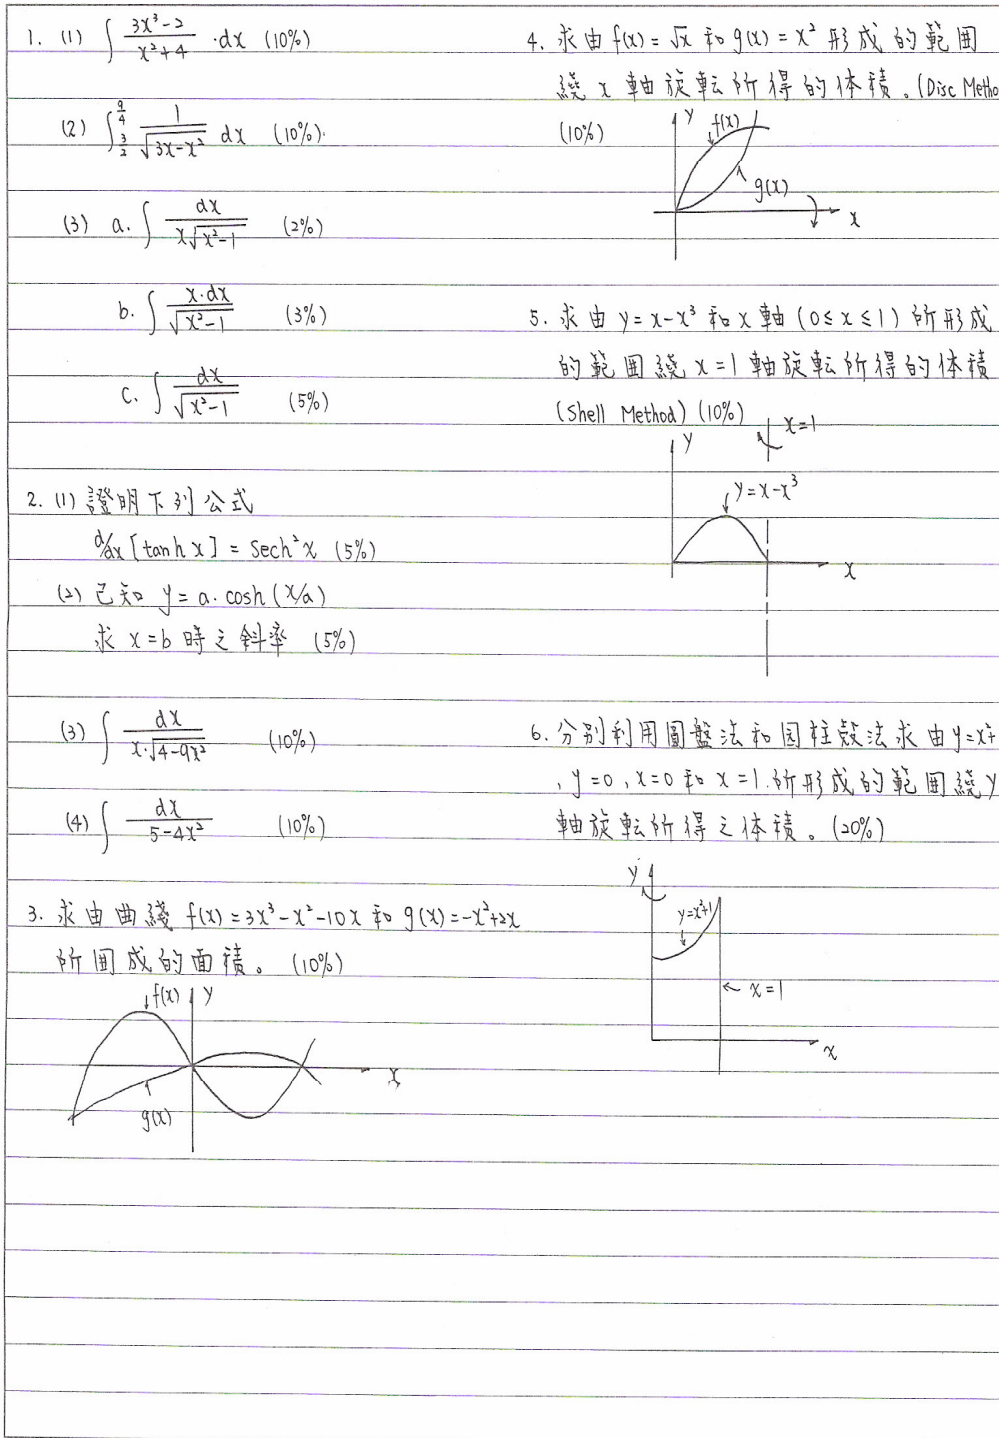 1. (1) ∫ (3x³-2)/(x²+4) ·dx (10%)
(2) ∫_{3/2}^{9/4} 1/√(3x-x²) dx (10%).
(3) a. ∫ dx/(x√(x²-1)) (2%)
b. ∫ x·dx/√(x²-1) (3%)
c. ∫ dx/√(x²-1) (5%)
2. (1) 證明下列公式
d/dx [tanh x] = Sech²x (5%)
(2) 已知 y = a·cosh(x/a)
求 x=b 時之斜率 (5%)
(3) ∫ dx/(x·√(4-9x²)) (10%)
(4) ∫ dx/(5-4x²) (10%)
3. 求由曲綫 f(x)=3x³-x²-10x 和 g(x)=-x²+2x
所囲成的面積。(10%)
f(x)
y
x
g(x)
4. 求由 f(x)=√x 和 g(x)=x² 形成的範囲
繞 x 軸旋転所得的体積。(Disc Metho
(10%)
y
f(x)
g(x)
x
5. 求由 y=x-x³ 和 x 軸 (0≤x≤1) 所形成
的範囲繞 x=1 軸旋転所得的体積
(Shell Method) (10%)
x=1
y
y=x-x³
x
6. 分別利用圓盤法和园柱殼法求由 y=x²+
, y=0, x=0 和 x=1. 所形成的範囲繞 y
軸旋転所得之体積。(20%)
y
y=x²+1
← x=1
x